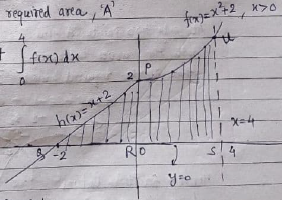 required area, 'A'
f(x)=x²+2, x>0
4
∫ f(x) dx
0
2
P
U
h(x)=x+2
x=4
-2
R
0
S
4
y=0